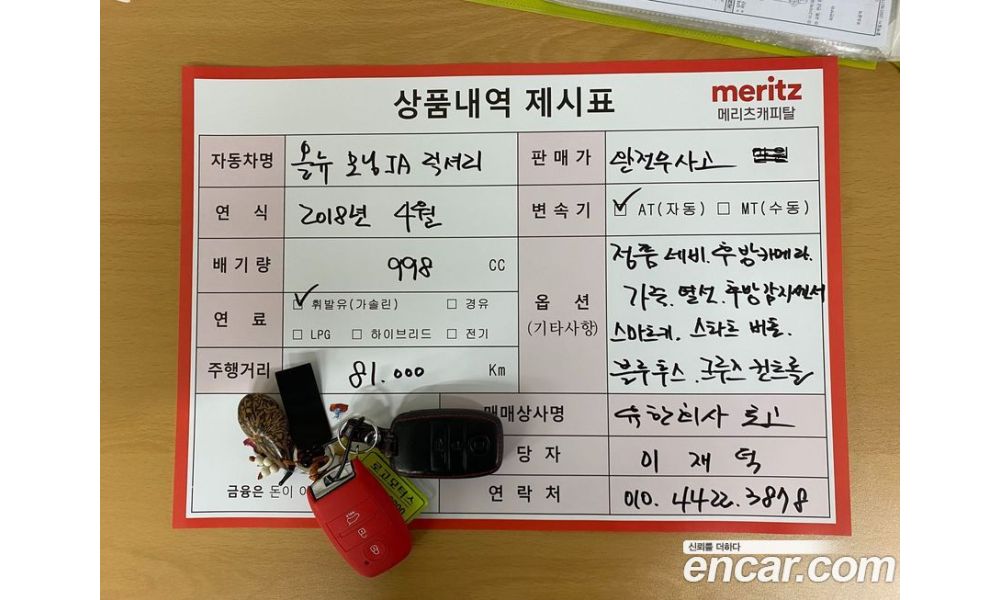 meritz
메리츠캐피탈
상품내역 제시표
자동차명 올뉴 모닝 JA 럭셔리
판매가 완전무사고 만원
연 식 2018년 4월
변속기 AT(자동) MT(수동)
배기량 998 CC
옵 션
(기타사항)
정품 네비. 후방카메라.
가죽. 열선. 후방감지센서
스마트키. 스타트 버튼.
블루투스. 크루즈 컨트롤
연 료 휘발유(가솔린) 경유
LPG 하이브리드 전기
주행거리 81.000 Km
매매상사명 유한회사 로고
당 자 이 재 덕
연 락 처 010. 4422. 3878
금융은 돈이 아
로고모터스
신뢰를 더하다
encar.com